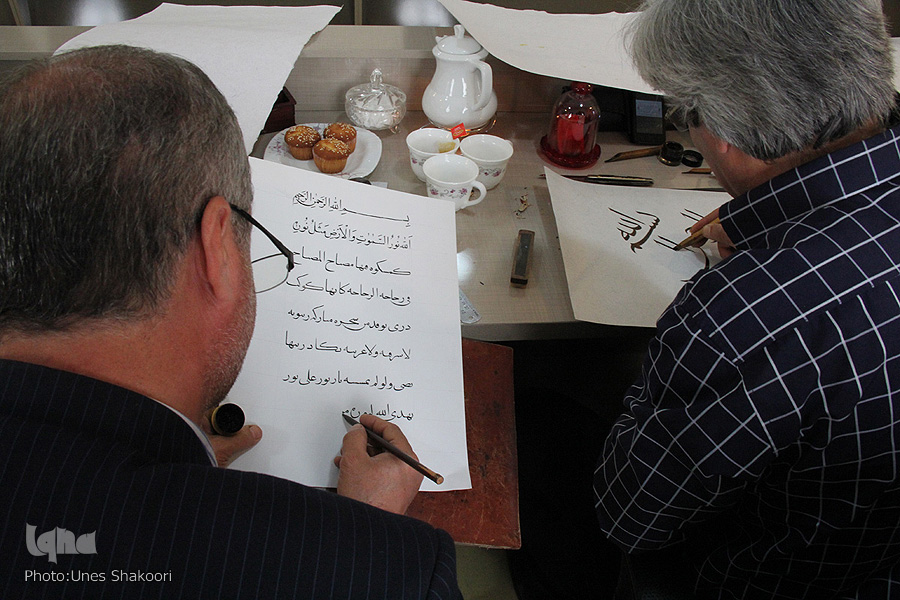 بِسْمِ اللهِ الرَّحْمٰنِ الرَّحِيمِ
اَللهُ نُورُ السَّمٰوٰتِ وَالْاَرْضِ مَثَلُ نُورِهِ
كمشكوة فيها مصباح المصباح
في زجاجة الزجاجة كانها كوكب
دري يوقد من شجرة مباركة زيتونة
لا شرقية ولا غربية يكاد زيتها
يضي ولو لم تمسسه نار نور على نور
يهدي الله لنوره م
بسم الله
iqna
Photo:Unes Shakoori